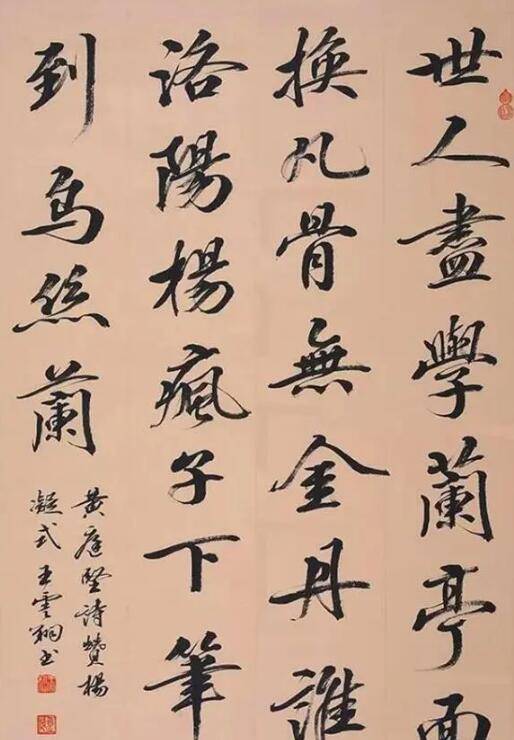 世人盡學蘭亭面
換凡骨無金丹誰
洛陽楊瘋子下筆
到烏絲蘭
黃庭堅詩贊楊
凝式 王雲翔书